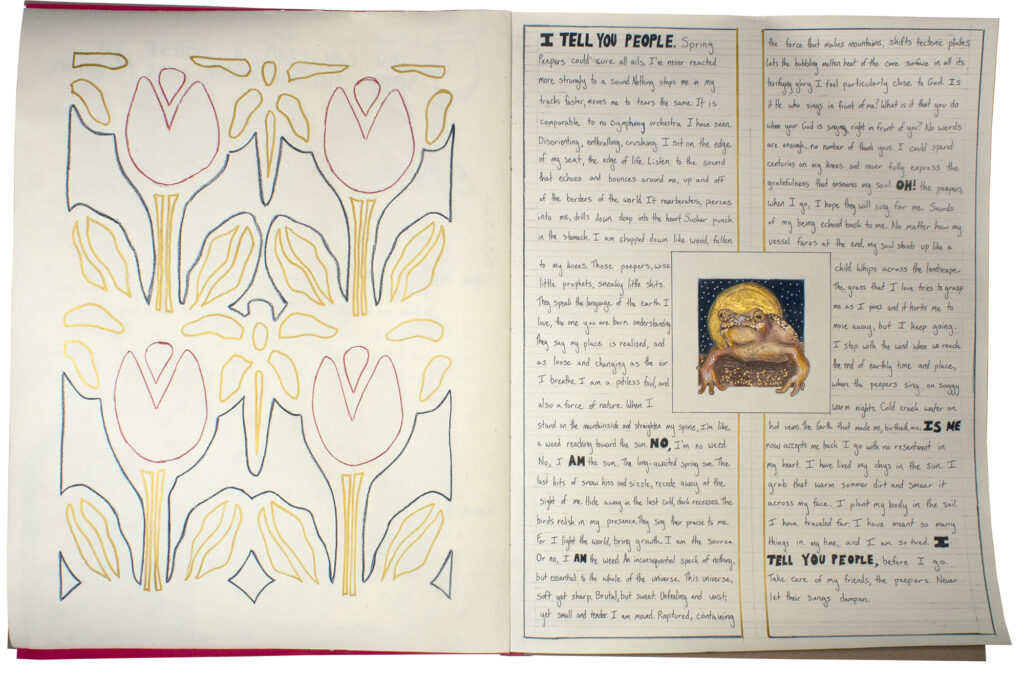 I TELL YOU PEOPLE. Spring
Peepers could cure all ails. I've never reacted
more strongly to a sound. Nothing stops me in my
tracks faster, moves me to tears the same. It is
comparable to no symphony orchestra I have seen.
Disorienting, enthralling, crushing. I sit on the edge
of my seat, the edge of life. Listen to the sound
that echoes and bounces around me, up and off
of the borders of the world. It reverberates, pierces
into me, drills down deep into the heart. Sucker punch
in the stomach. I am chopped down like wood, fallen
to my knees. These peepers, wise
little prophets, sneaky little shits.
They speak the language of the earth I
love, the one you are born understanding.
They say my place is realized, and
as loose and changing as the air
I breathe. I am a pitiless foul, and
also a force of nature. When I
stand on the mountainside and straighten my spine, I'm like
a weed reaching toward the sun. NO, I'm no weed.
No, I AM the sun. The long-awaited spring sun. The
last bits of snow hiss and sizzle, recede away at the
sight of me. Hide away in the last cold, dark recesses. The
birds relish in my presence. They sing their praise to me.
For I light the world, bring growth. I am the source.
Or no, I AM the weed. An inconsequential speck of nothing,
but essential to the whole of the universe. This universe,
soft yet sharp. Brutal, but sweet. Unfeeling and vast,
yet small and tender. I am moved. Raptured, containing
the force that makes mountains, shifts tectonic plates.
Lets the bubbling molten heat of the core surface in all its
terrifying glory. I feel particularly close to God. Is
it He who sings in front of me? What is it that you do
when your God is singing right in front of you? No words
are enough, no number of thank yous. I could spend
centuries on my knees and never fully express the
gratefulness that ensnares my soul. OH! the peepers,
when I go, I hope they will sing for me. Sounds
of my being echoed back to me. No matter how my
vessel fares at the end, my soul stands up like a
child. Whips across the landscape.
The grass that I love tries to grasp
me as I pass and it hurts me to
move away, but I keep going.
I stop with the wind when we reach
the end of earthly time and place,
where the peepers sing on soggy
warm nights. Cold creek water on
hot veins. The Earth that made me, birthed me, IS ME
now accepts me back. I go with no resentment in
my heart. I have lived my days in the sun. I
grab that warm summer dirt and smear it
across my face. I plant my body in the soil.
I have traveled far, I have meant so many
things in my time, and I am so tired. I
TELL YOU PEOPLE, before I go.
Take care of my friends, the peepers. Never
let their songs dampen.